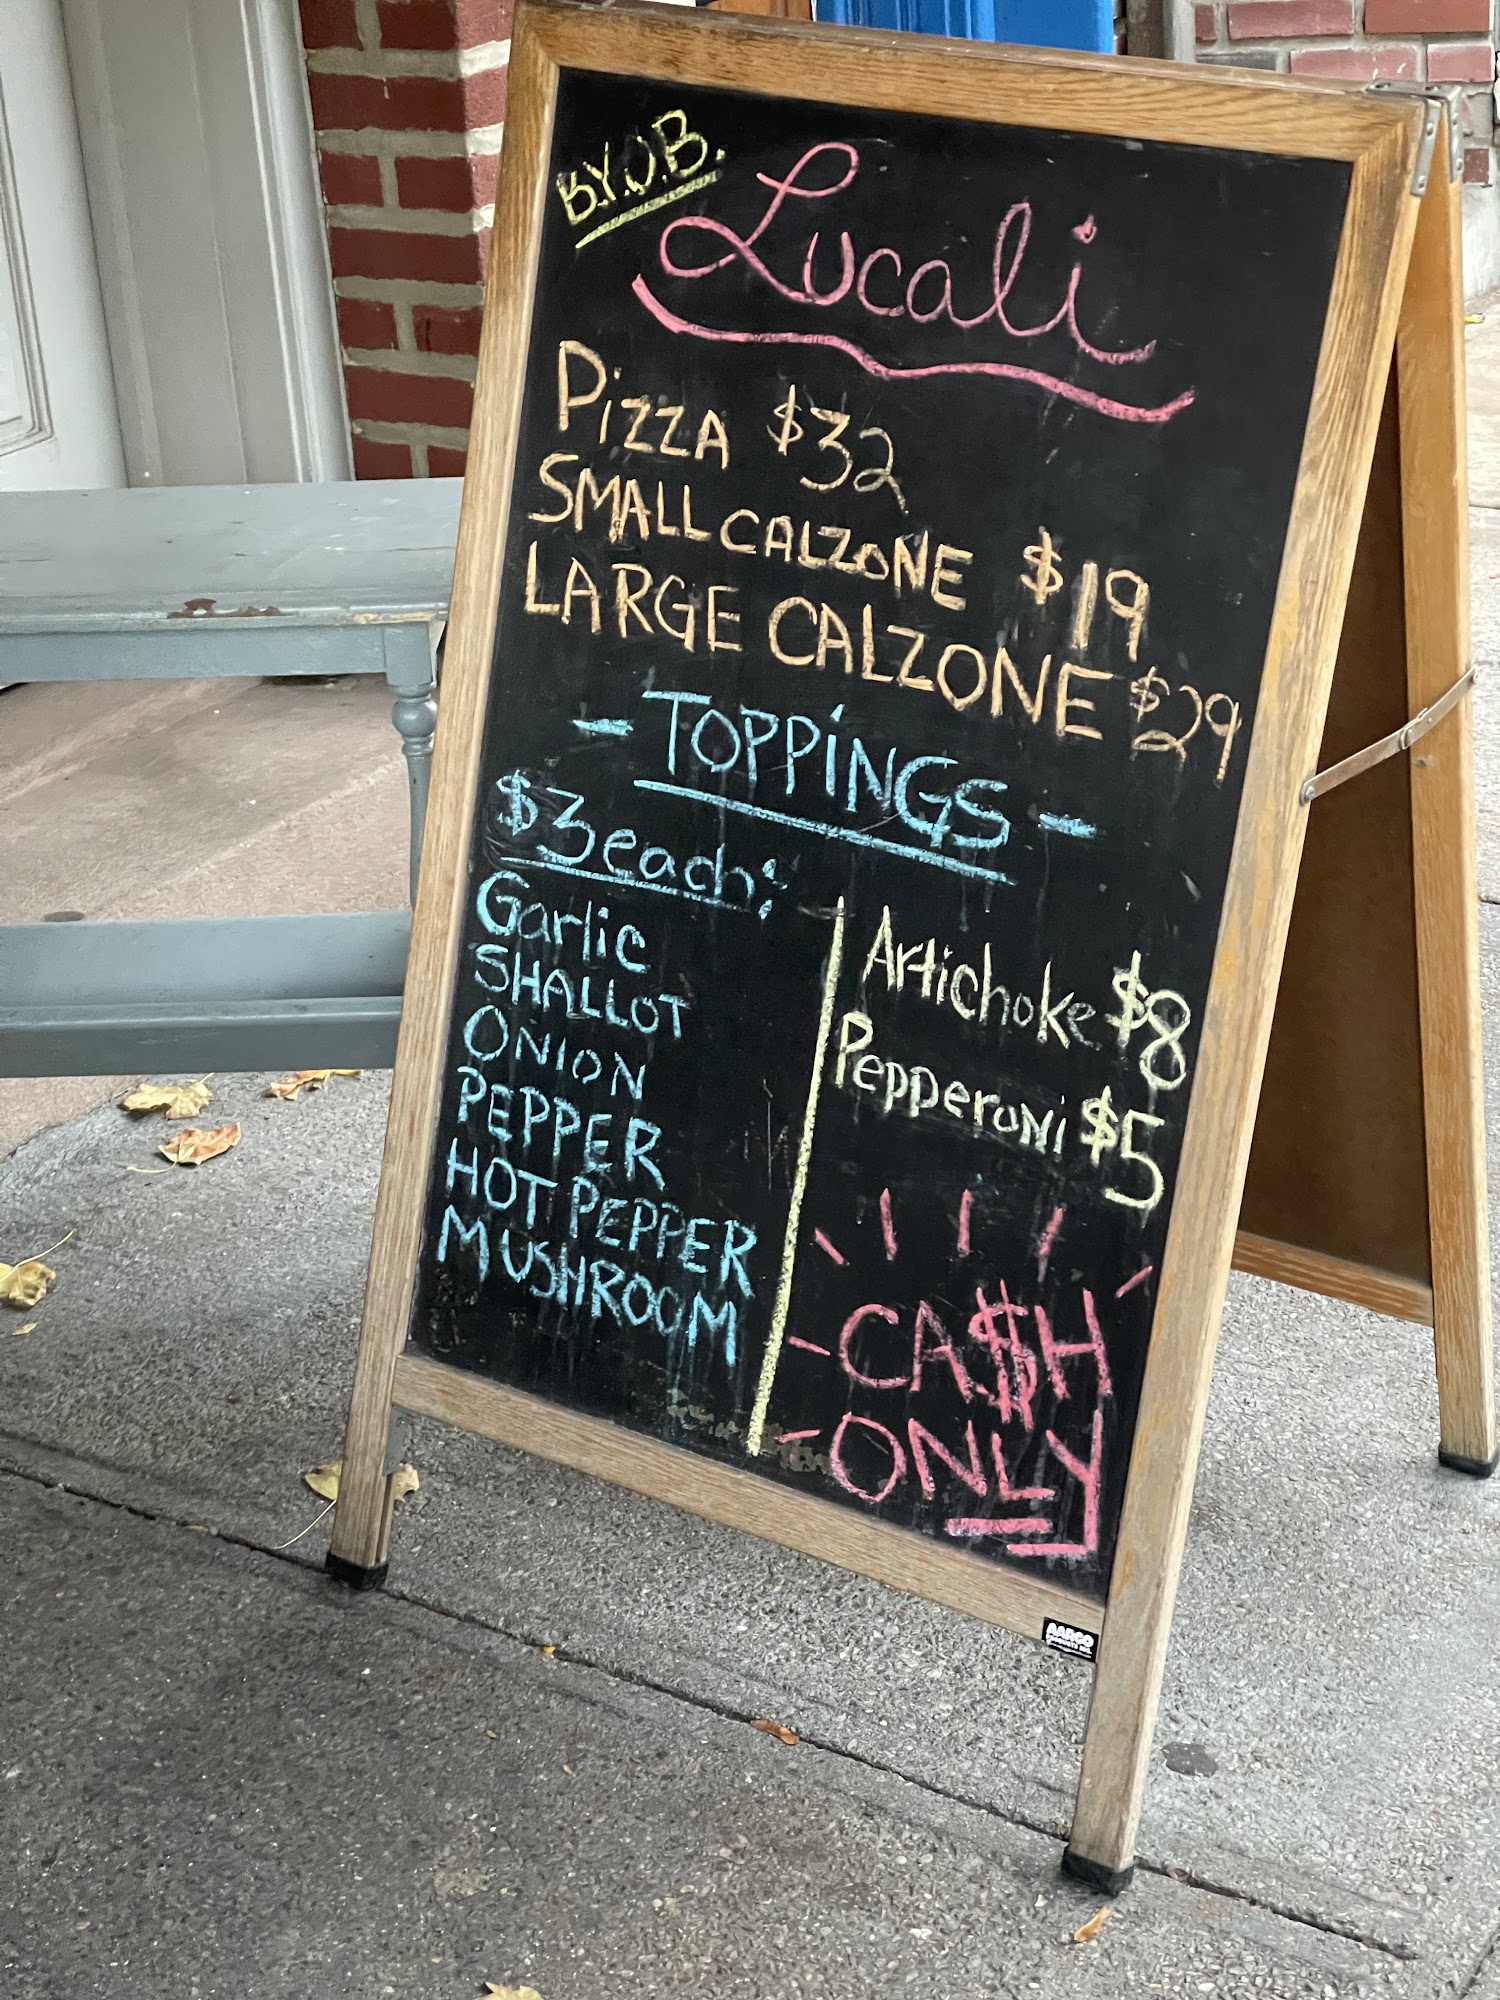 B.Y.O.B.
Lucali
PiZZA $32
SMALL CALZONE $19
LARGE CALZONE $29
- TOPPiNGS -
$3 each:
Garlic
SHALLOT
ONION
PEPPER
HOT PEPPER
MUSHROOM
Artichoke $8
Pepperoni $5
CA$H
ONLY
AARCO